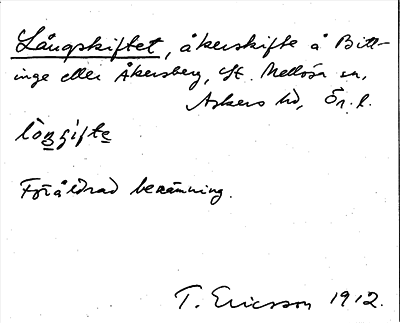 Långskiftet, åkerskifte å Bitt-
inge eller Åkersberg, St. Mellösa sn,
Askers hd, Ör. l.
lòŋʃifte
Föråldrad benämning.
T. Ericsson 1912.